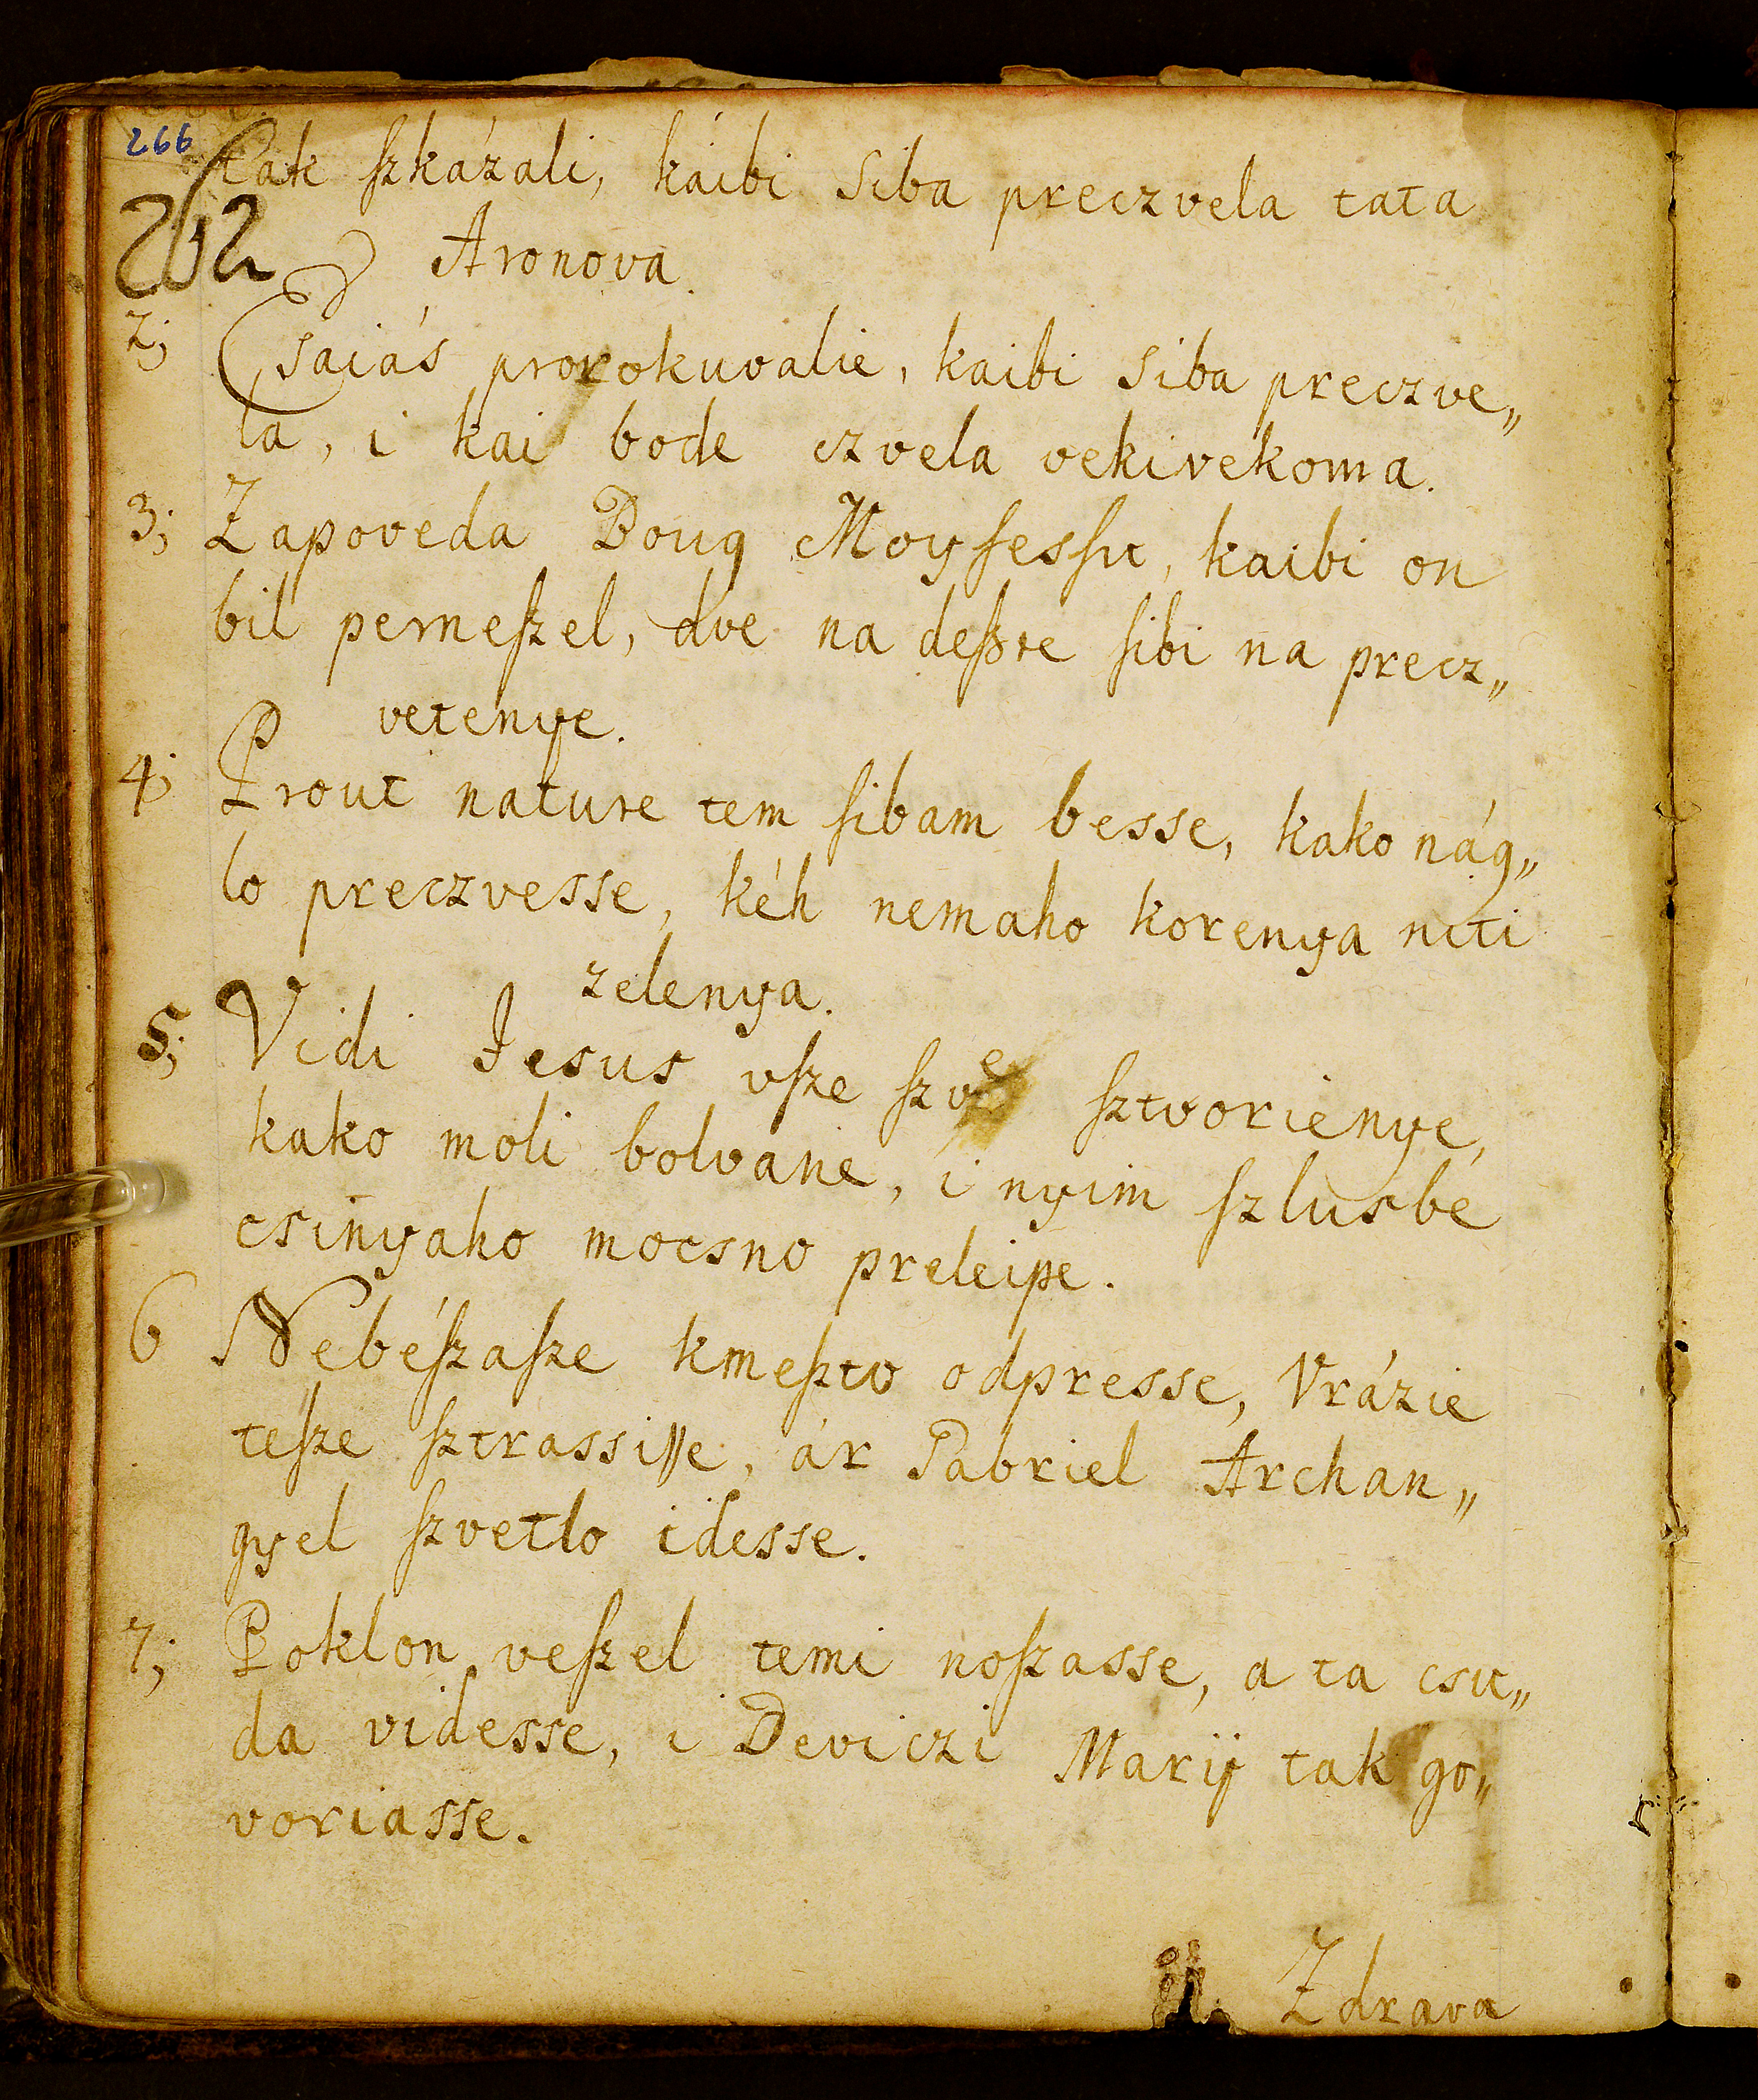 266
Tak ſzkázali, káibi siba preczvela tata
262
Aronova.
2; Esaiás prorokuvalie, kaibi siba preczve„
la, i kai bode czvela vekivekoma.
3; Zapoveda Boug Moyſesſu, kaibi on
bil perneſzel, dve na deſzte ſibi na precz„
vetenye.
4; Prout nature tem ſibam besse, kako nág„
lo preczvesse, kéh nemaho korenya niti
zelenya.
5; Vidi Jesus vſze ſzvé ſztvorienye,
kako moli bolvane, i nyim ſzlusbé
csinyaho mocsno preleipe.
6 Nebéſzaſze kmeſztv odpresse, Vrázie
teſze ſztrassiſſe, ár Gabriel Archan„
gyel ſzvetlo idesse.
7; Poklon veſzel temi noſzasse, a ta csu„
da videsse, i Deviczi Marij tak go„
voriasse.
Zdrava